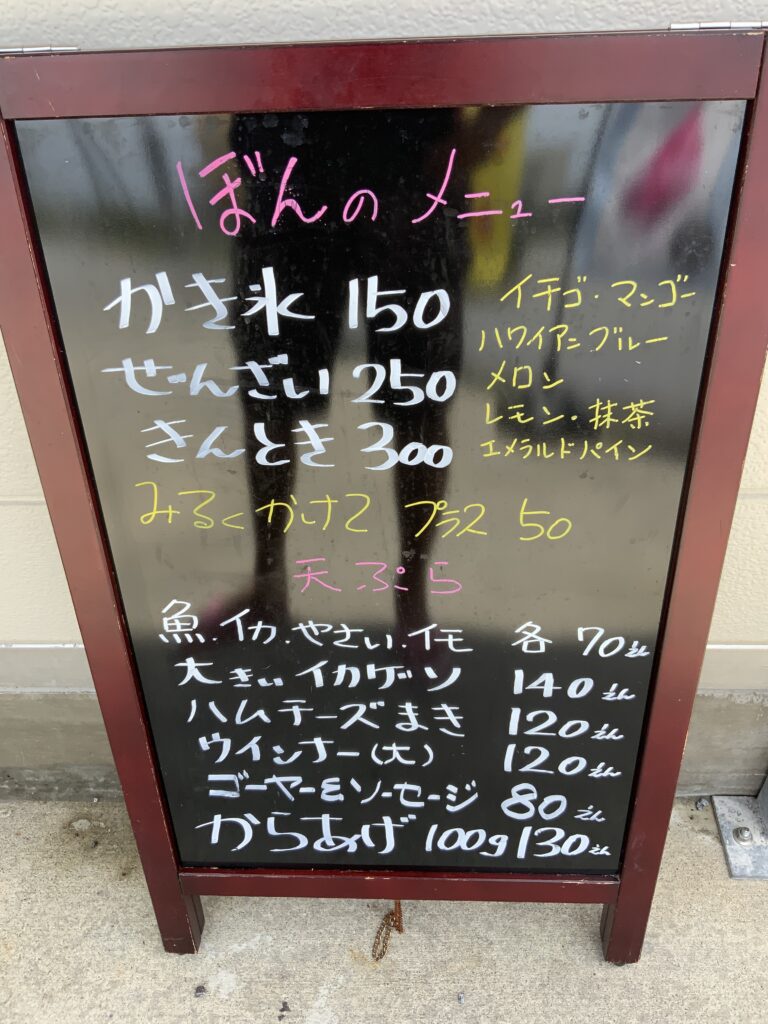 ぼんのメニュー
かき氷 150
ぜんざい 250
きんとき 300
イチゴ・マンゴー
ハワイアンブルー
メロン
レモン・抹茶
エメラルドパイン
みるくかけて プラス 50
天ぷら
魚・イカ・やさい・イモ 各 70えん
大きいイカゲソ 140えん
ハムチーズまき 120えん
ウインナー(大) 120えん
ゴーヤー&ソーセージ 80えん
からあげ 100g 130えん